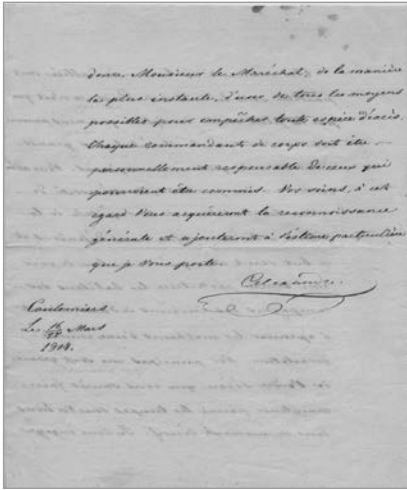 donc, Monsieur le Maréchal, de la manière
la plus instante, d'user de tous les moyens
possibles pour empêcher toute espèce d'excès.
Chaque commandant de corps doit être
personnellement responsable de ceux qui
pourroient être commis. Vos soins, à cet
égard Vous acquéreront la reconnoissance
générale et ajouteront à l'estime particulière
que je Vous porte.
Alexandre.
Coulomiers
Le 16/28 Mars
1814.